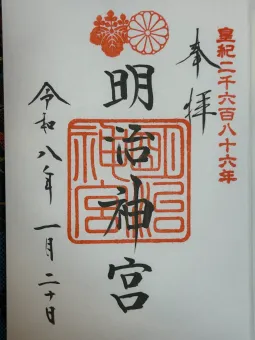 皇紀二千六百八十六年
奉拝
明治神宮
明治神宮
令和八年 一月二十日